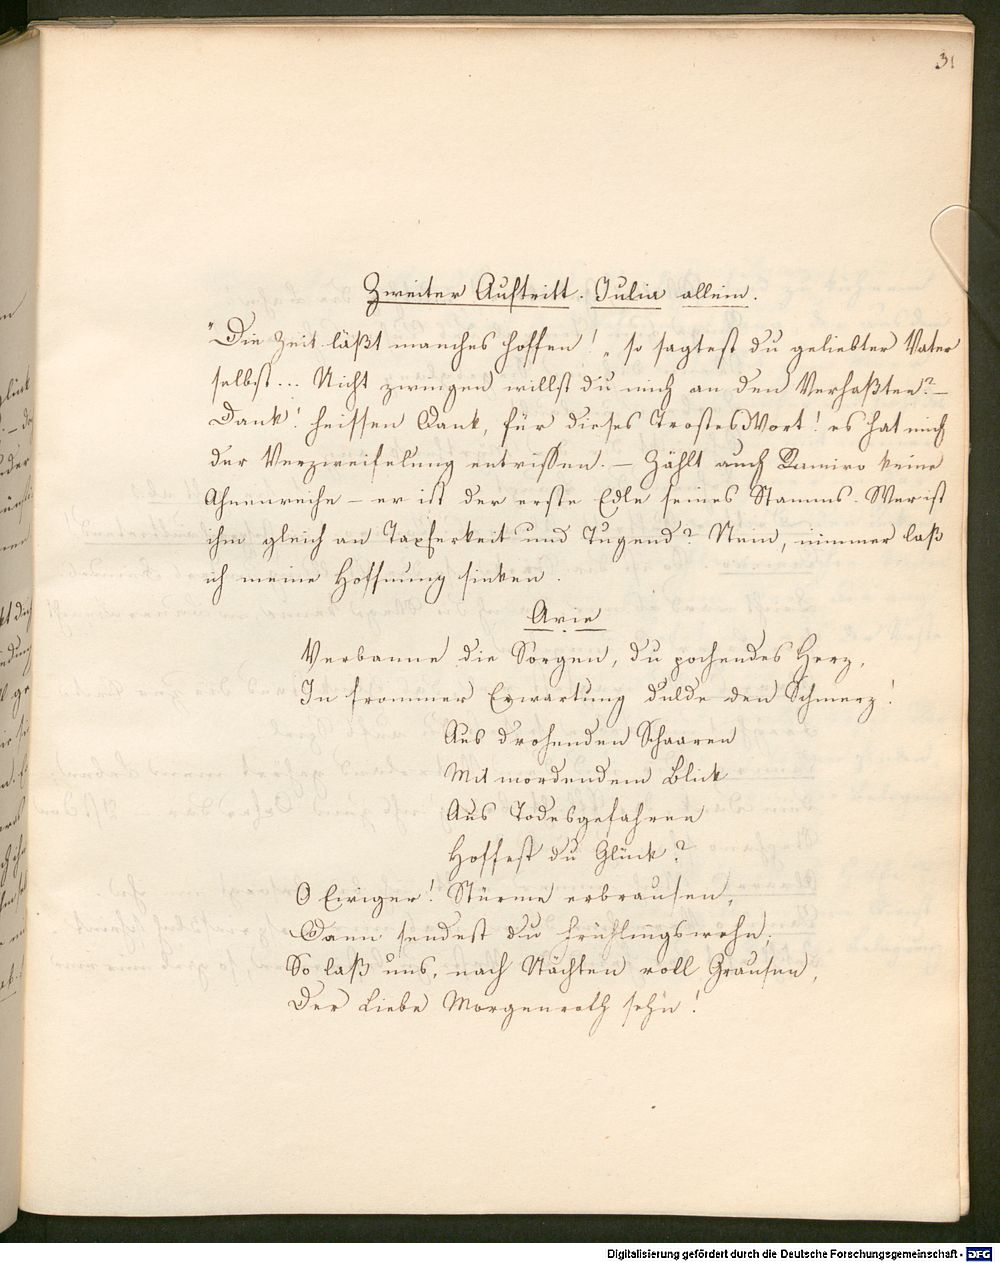 31
Zweiter Auftritt. Julia allein.
"Die Zeit läßt manches hoffen! „ so sagtest du geliebter Vater
selbst... Nicht zwingen willst du mich an den Verhaßten? –
Dank! heissen Dank, für dieses Trostes Wort! es hat mich
der Verzweifelung entrissen. – Zählt auch Ramiro keine
Ahnenreihe – er ist der erste Edle seines Stamms. Wer ist
ihm gleich an Tapferkeit und Tugend? Nein, nimmer laß
ich meine Hoffnung sinken.
Arie
Verbanne die Sorgen, du pochendes Herz,
In frommer Erwartung dulde den Schmerz!
Aus drohenden Schaaren
Mit mordendem Blick
Aus Todesgefahren
Hoffest du Glück?
O Ewiger! Stürme erbrausen,
Dann sendest du Frühlingswehn;
So laß uns, nach Nächten voll Grausen,
Der Liebe Morgenroth seh'n!
Digitalisierung gefördert durch die Deutsche Forschungsgemeinschaft - DFG